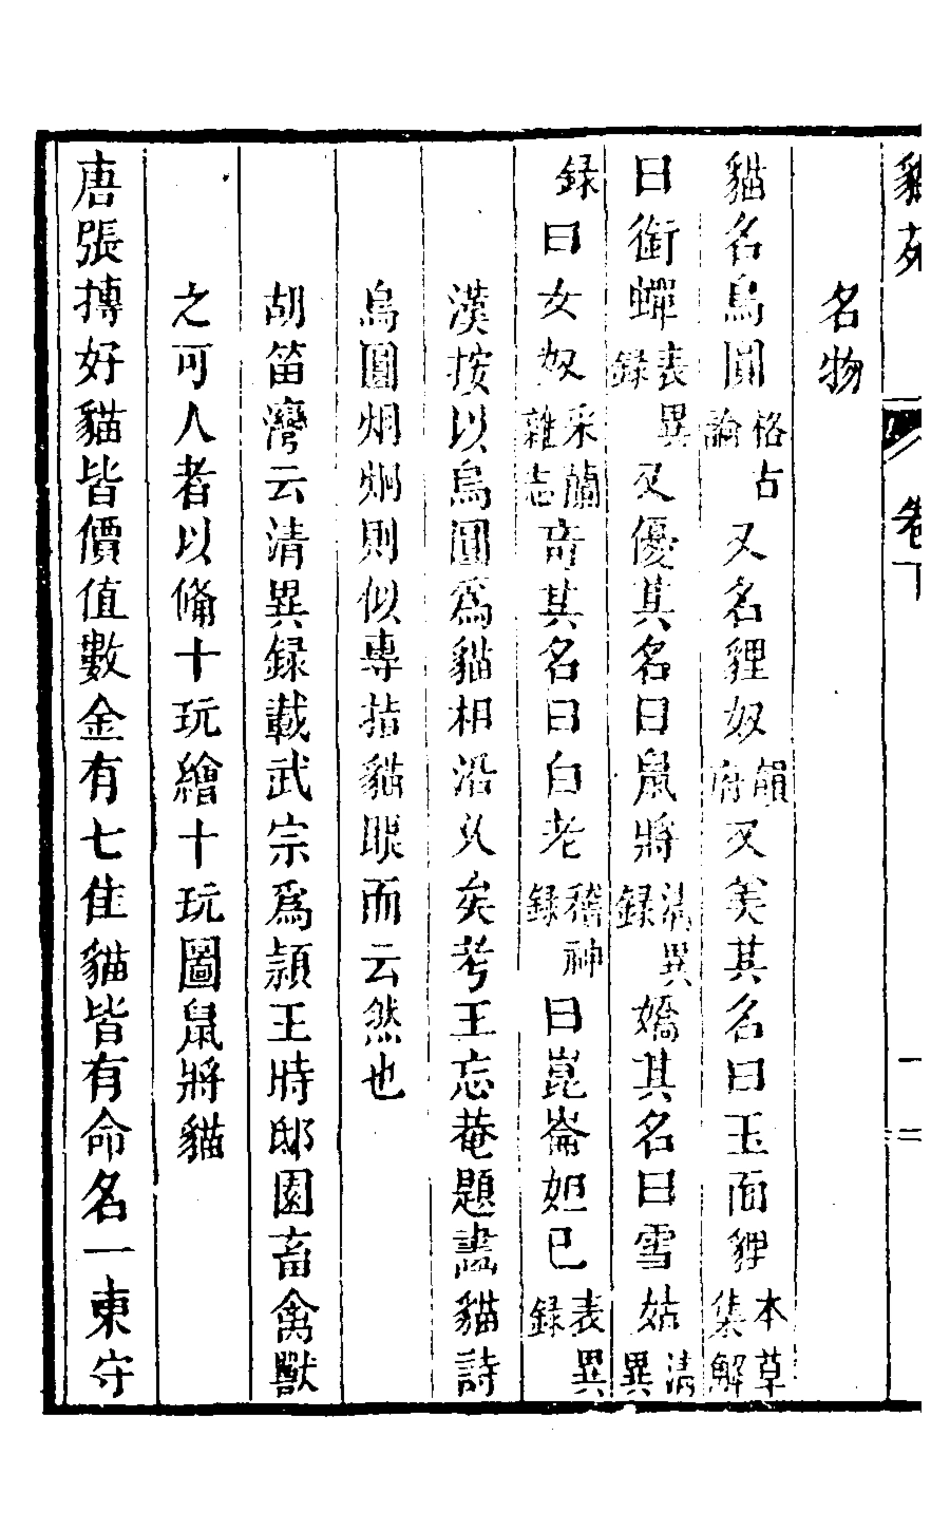 貓苑 卷下 一
名物
貓名烏圓格古論又名貍奴韻府又美其名曰玉面貍本草集解
曰銜蟬表異録又優其名曰鼠將清異録嬌其名曰雪姑清異
録曰女奴采蘭雜志奇其名曰白老稽神録曰崑崙妲己表異録
漢按以烏圓爲貓相沿久矣考王忘菴題畫貓詩
烏圓炯炯則似專指貓眼而云然也
胡笛灣云清異録載武宗爲潁王時邸園畜禽獸
之可人者以備十玩繪十玩圖鼠將貓
唐張摶好貓皆價值數金有七佳貓皆有命名一東守